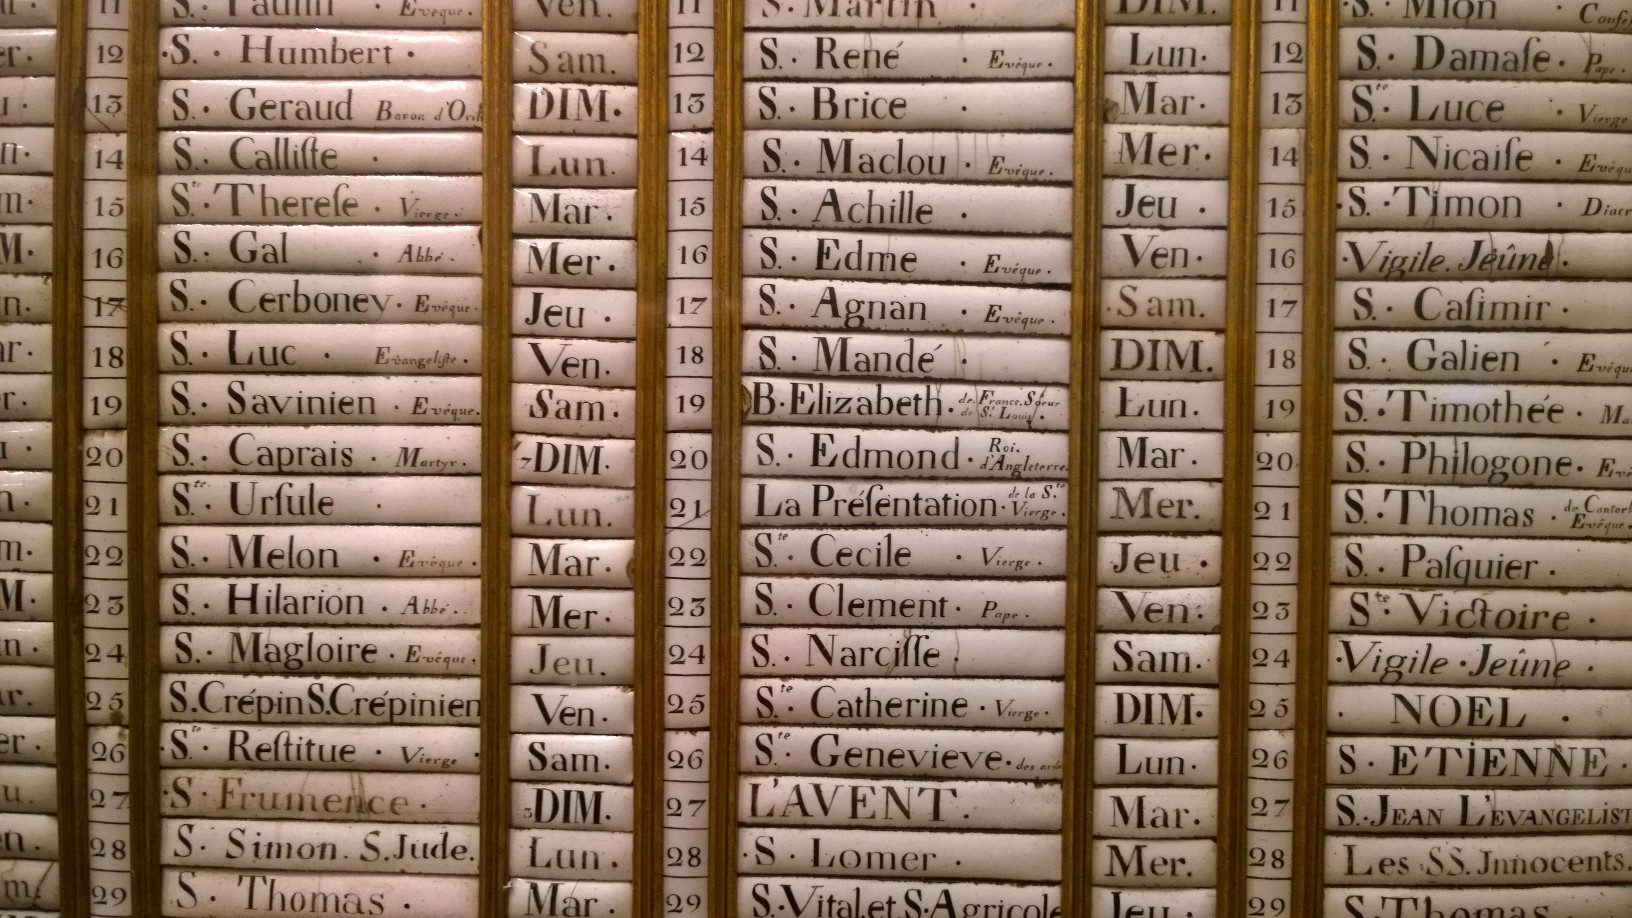 11 S. Paulin Eveque. Ven. 11 S. Martin DIM. 11 S. Mion
er. 12 ·S. · Humbert · Sam. 12 S. · René · Evéque. Lun. 12 S. · Damaſe · Pape.
13 S. · Geraud Baron d'Oril DIM. 13 S. · Brice · Mar. 13 Ste Luce Vierge
n. 14 S. · Calliſte · Lun. 14 S. · Maclou · Evêque. Mer. 14 S. · Nicaiſe · Evêqu
m. 15 Ste Thereſe · Vierge. Mar. 15 S. · Achille · Jeu · 15 ·S. · Timon · Diacr
M. 16 S. · Gal · Abbé. Mer. 16 S. · Edme · Evêque. Ven. 16 ·Vigile. Jeûne ·
n. 17 S. · Cerboney · Evêque. Jeu · 17 S. · Agnan · Evêque. ·Sam. 17 S. · Caſimir ·
ar. 18 S. · Luc · Evangeliſte. Ven. 18 S. · Mandé · DIM. 18 S. · Galien · Evêqu
r. 19 S. · Savinien · Evêque. Sam. 19 B. Elizabeth. de France. Sœur de St. Louis. Lun. 19 S. · Timothée · Ma
20 S. · Caprais · Martyr. DIM. 20 S. · Edmond · Roi. d'Angleterre. Mar. 20 S. · Philogone · Evê
21 Ste Urſule · Lun. 21 La Préſentation · de la Ste Vierge. Mer. 21 S. · Thomas · de Cantorb Evêque.
m. 22 S. · Melon · Evêque. Mar. 22 Ste Cecile · Vierge. Jeu · 22 S. · Paſquier ·
M. 23 S. · Hilarion · Abbé. Mer. 23 S. · Clement · Pape. Ven. 23 Ste Victoire ·
n. 24 S. · Magloire · Evêque. Jeu. 24 S. · Narciſſe · Sam. 24 ·Vigile · Jeûne ·
ar. 25 S. Crépin S. Crépinien Ven. 25 Ste Catherine · Vierge. DIM. 25 · NOEL ·
er. 26 ·Ste Reſtitue · Vierge Sam. 26 Ste Genevieve · des Lun. 26 S · ETIENNE ·
u. 27 ·S · Frumence · DIM. 27 L'AVENT. Mar. 27 S. · JEAN L'EVANGELIST
en. 28 S · Simon. S. Jude. Lun. 28 ·S · Lomer · Mer. 28 Les SS. Jnnocents.
m. 29 S · Thomas · Mar. 29 S. Vital, et S. Agricole Jeu. 29 S. Thomas